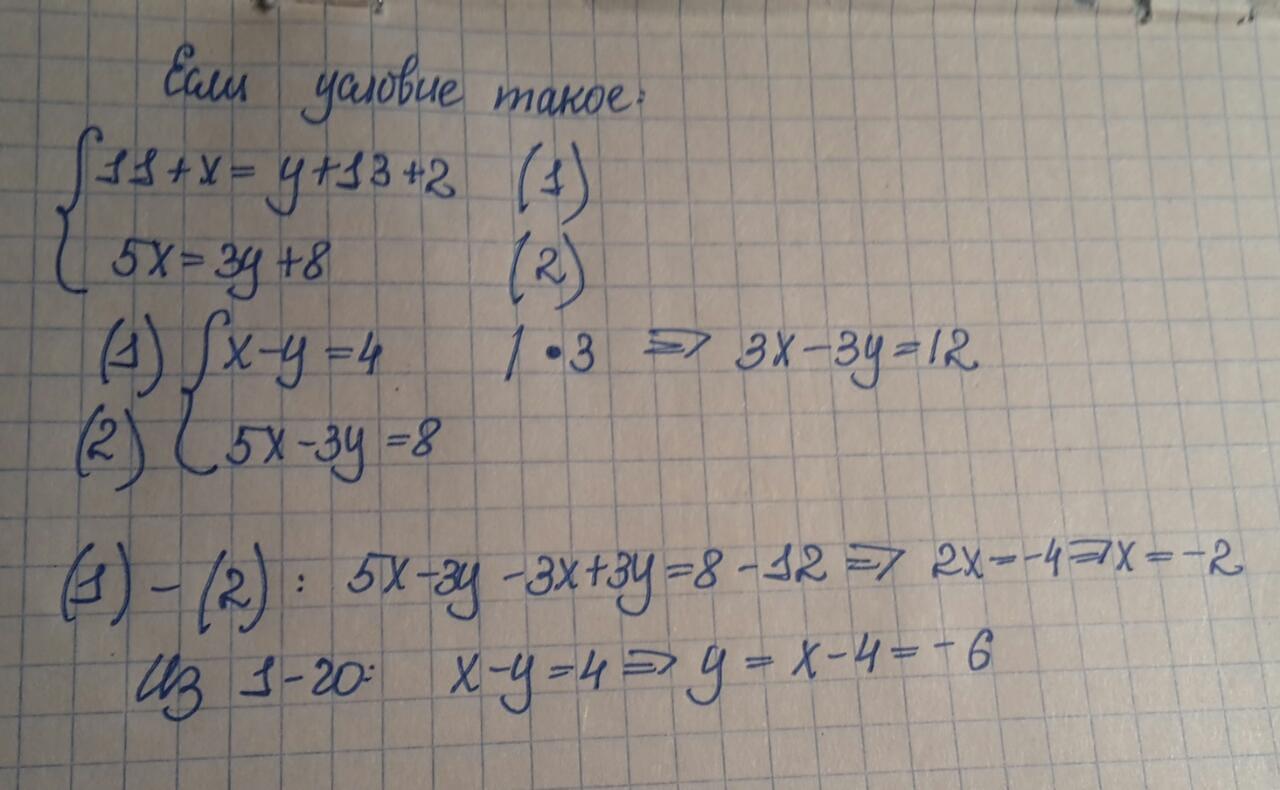 Если условие такое:
{ 11+x = y+13+2 (1)
5x = 3y+8 (2)
(1) { x-y = 4 | • 3 => 3x-3y = 12
(2) 5x-3y = 8
(1) - (2) : 5x-3y-3x+3y = 8-12 => 2x = -4 => x = -2
Из 1-го: x-y = 4 => y = x-4 = -6